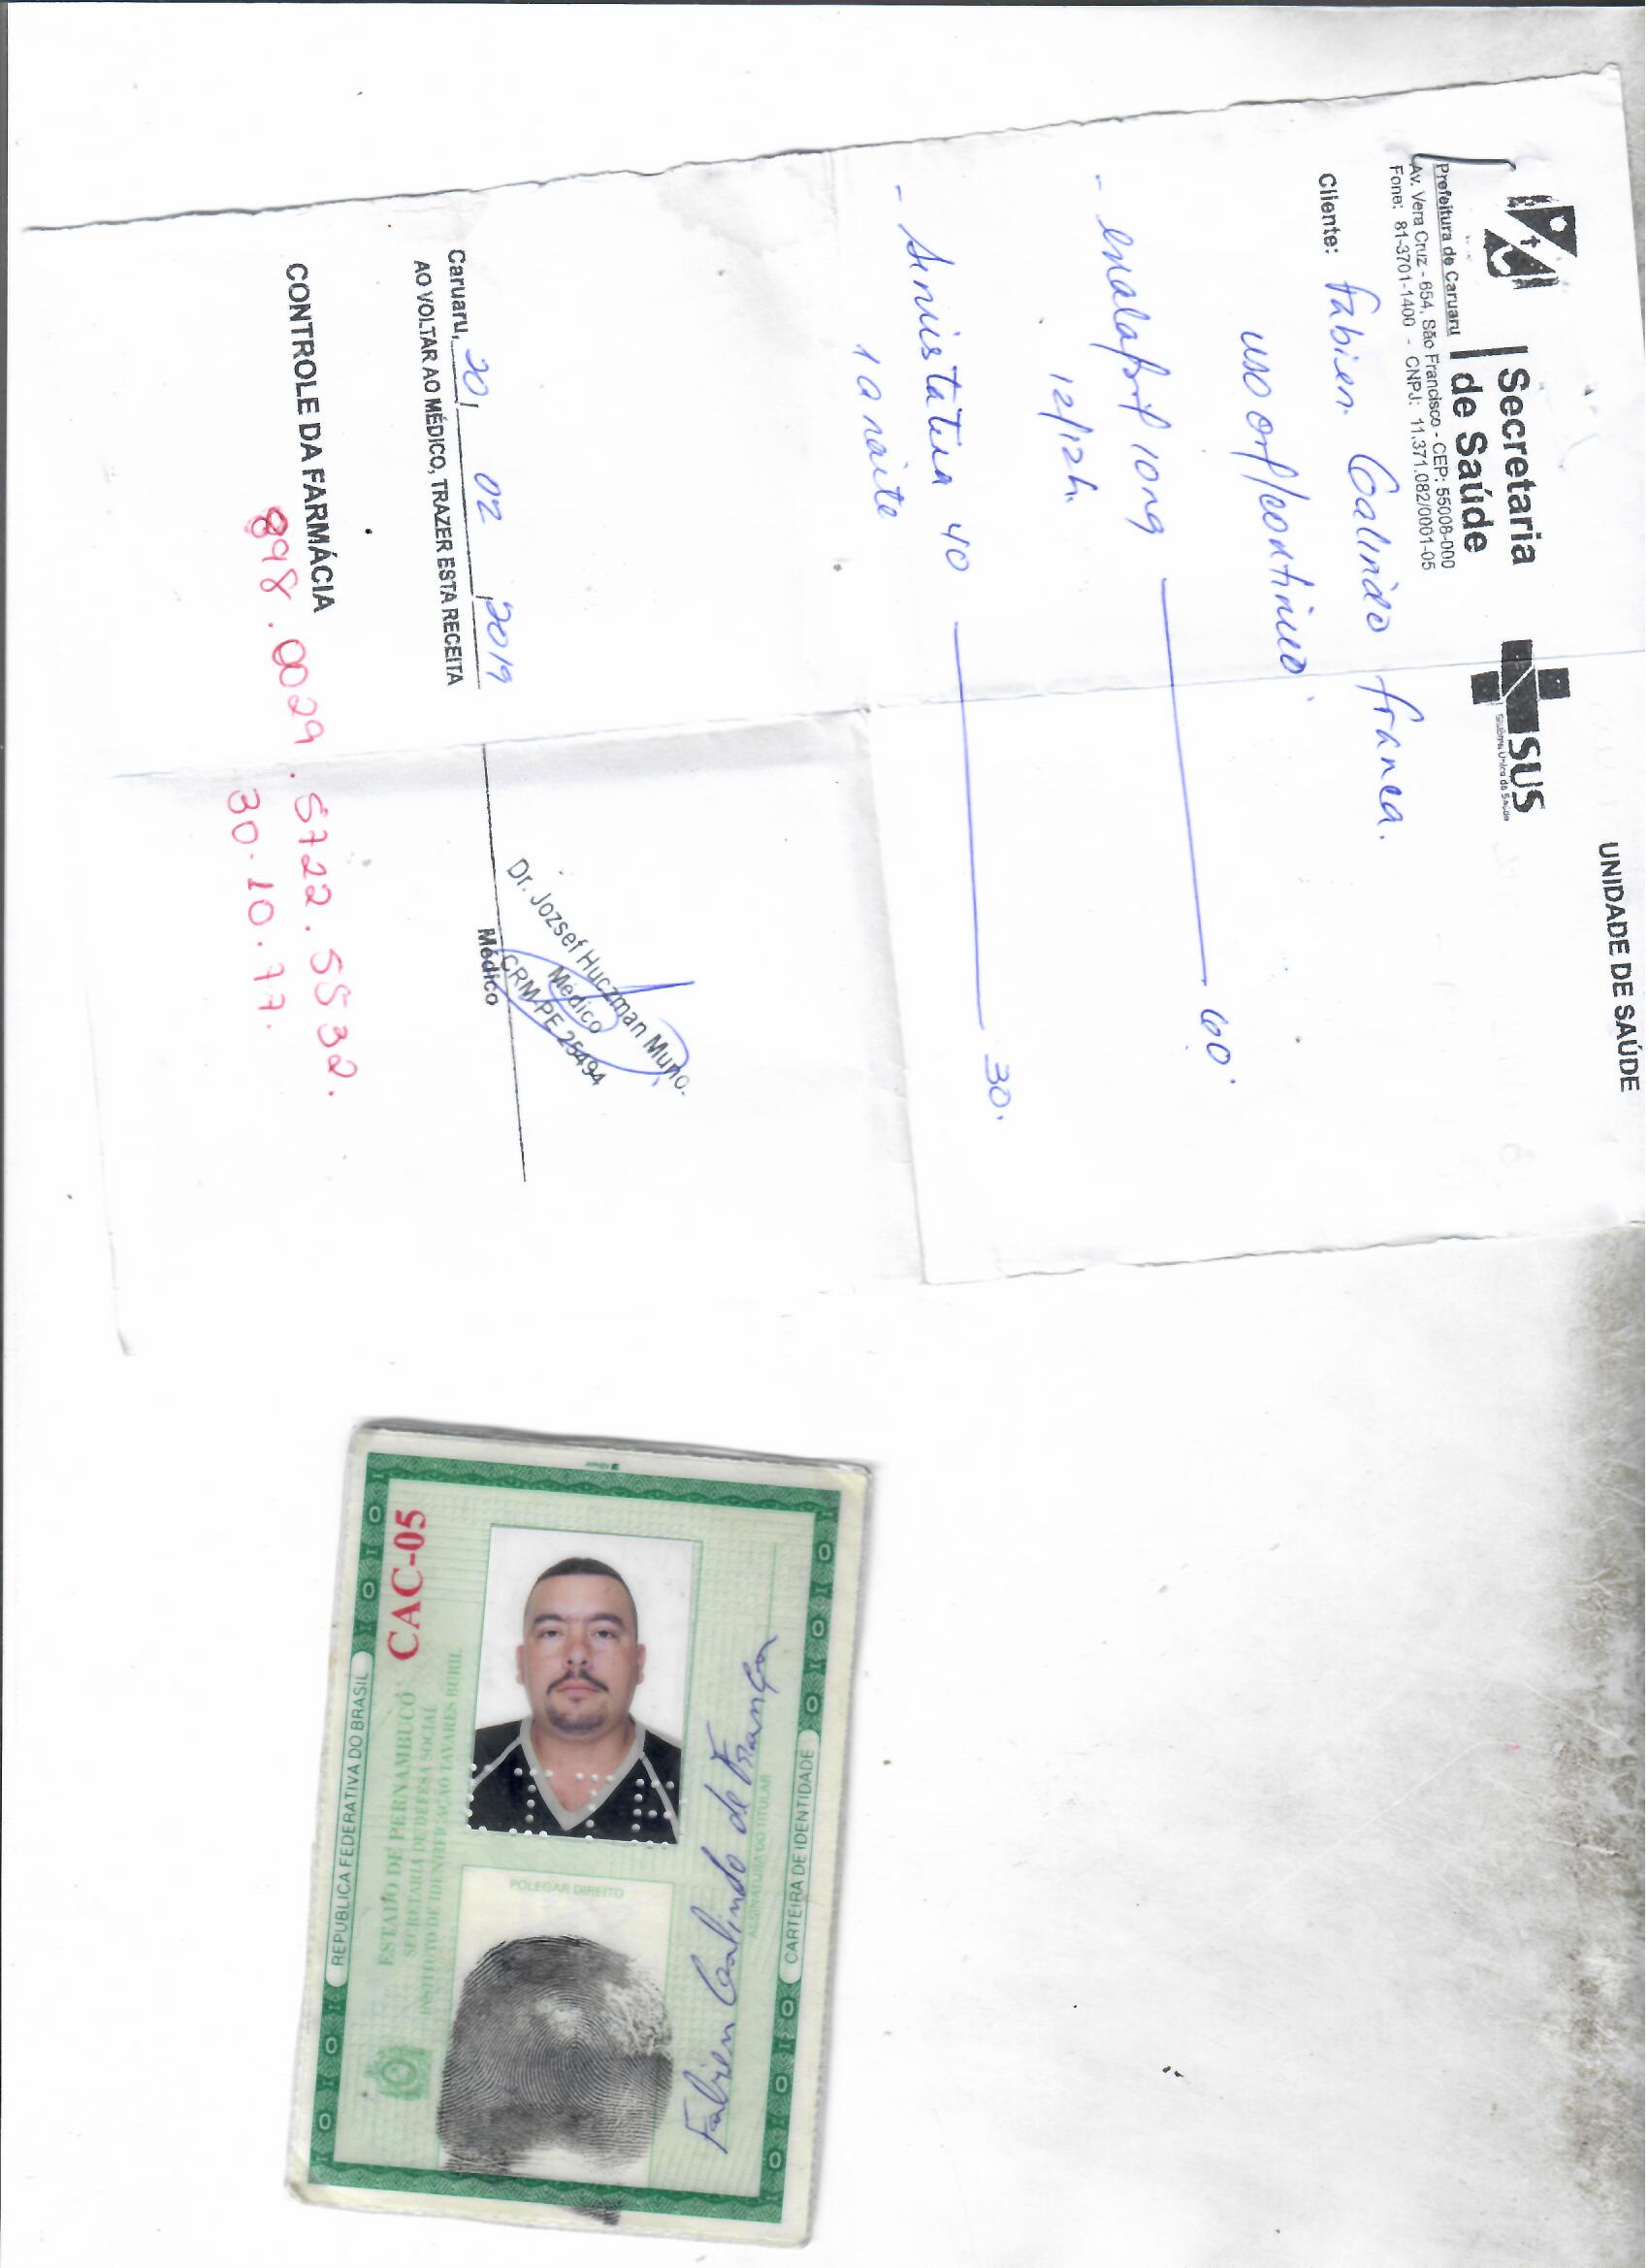 UNIDADE DE SAÚDE
Secretaria
de Saúde
SUS
Sistema Único de Saúde
Prefeitura de Caruaru
Av. Vera Cruz - 654, São Francisco - CEP: 55008-000
Fone: 81-3701-1400 - CNPJ: 11.371.082/0001-05
Cliente: Fabien Galindo Franca.
uso oral/continuo
- enalapril 10mg 60.
12/12h.
- Sinvistatina 40 30.
1 a noite
Dr. Jozsef Huczman Muno.
Médico
CRM-PE 25494
Caruaru, 20, 02, 2019
Médico
AO VOLTAR AO MÉDICO, TRAZER ESTA RECEITA
CONTROLE DA FARMÁCIA
898.0029.5722.5532.
30.10.77.
REPÚBLICA FEDERATIVA DO BRASIL
CAC-05
ESTADO DE PERNAMBUCO
SECRETARIA DE DEFESA SOCIAL
INSTITUTO DE IDENTIFICAÇÃO TAVARES BURIL
POLEGAR DIREITO
Fabien Galindo de França
ASSINATURA DO TITULAR
CARTEIRA DE IDENTIDADE